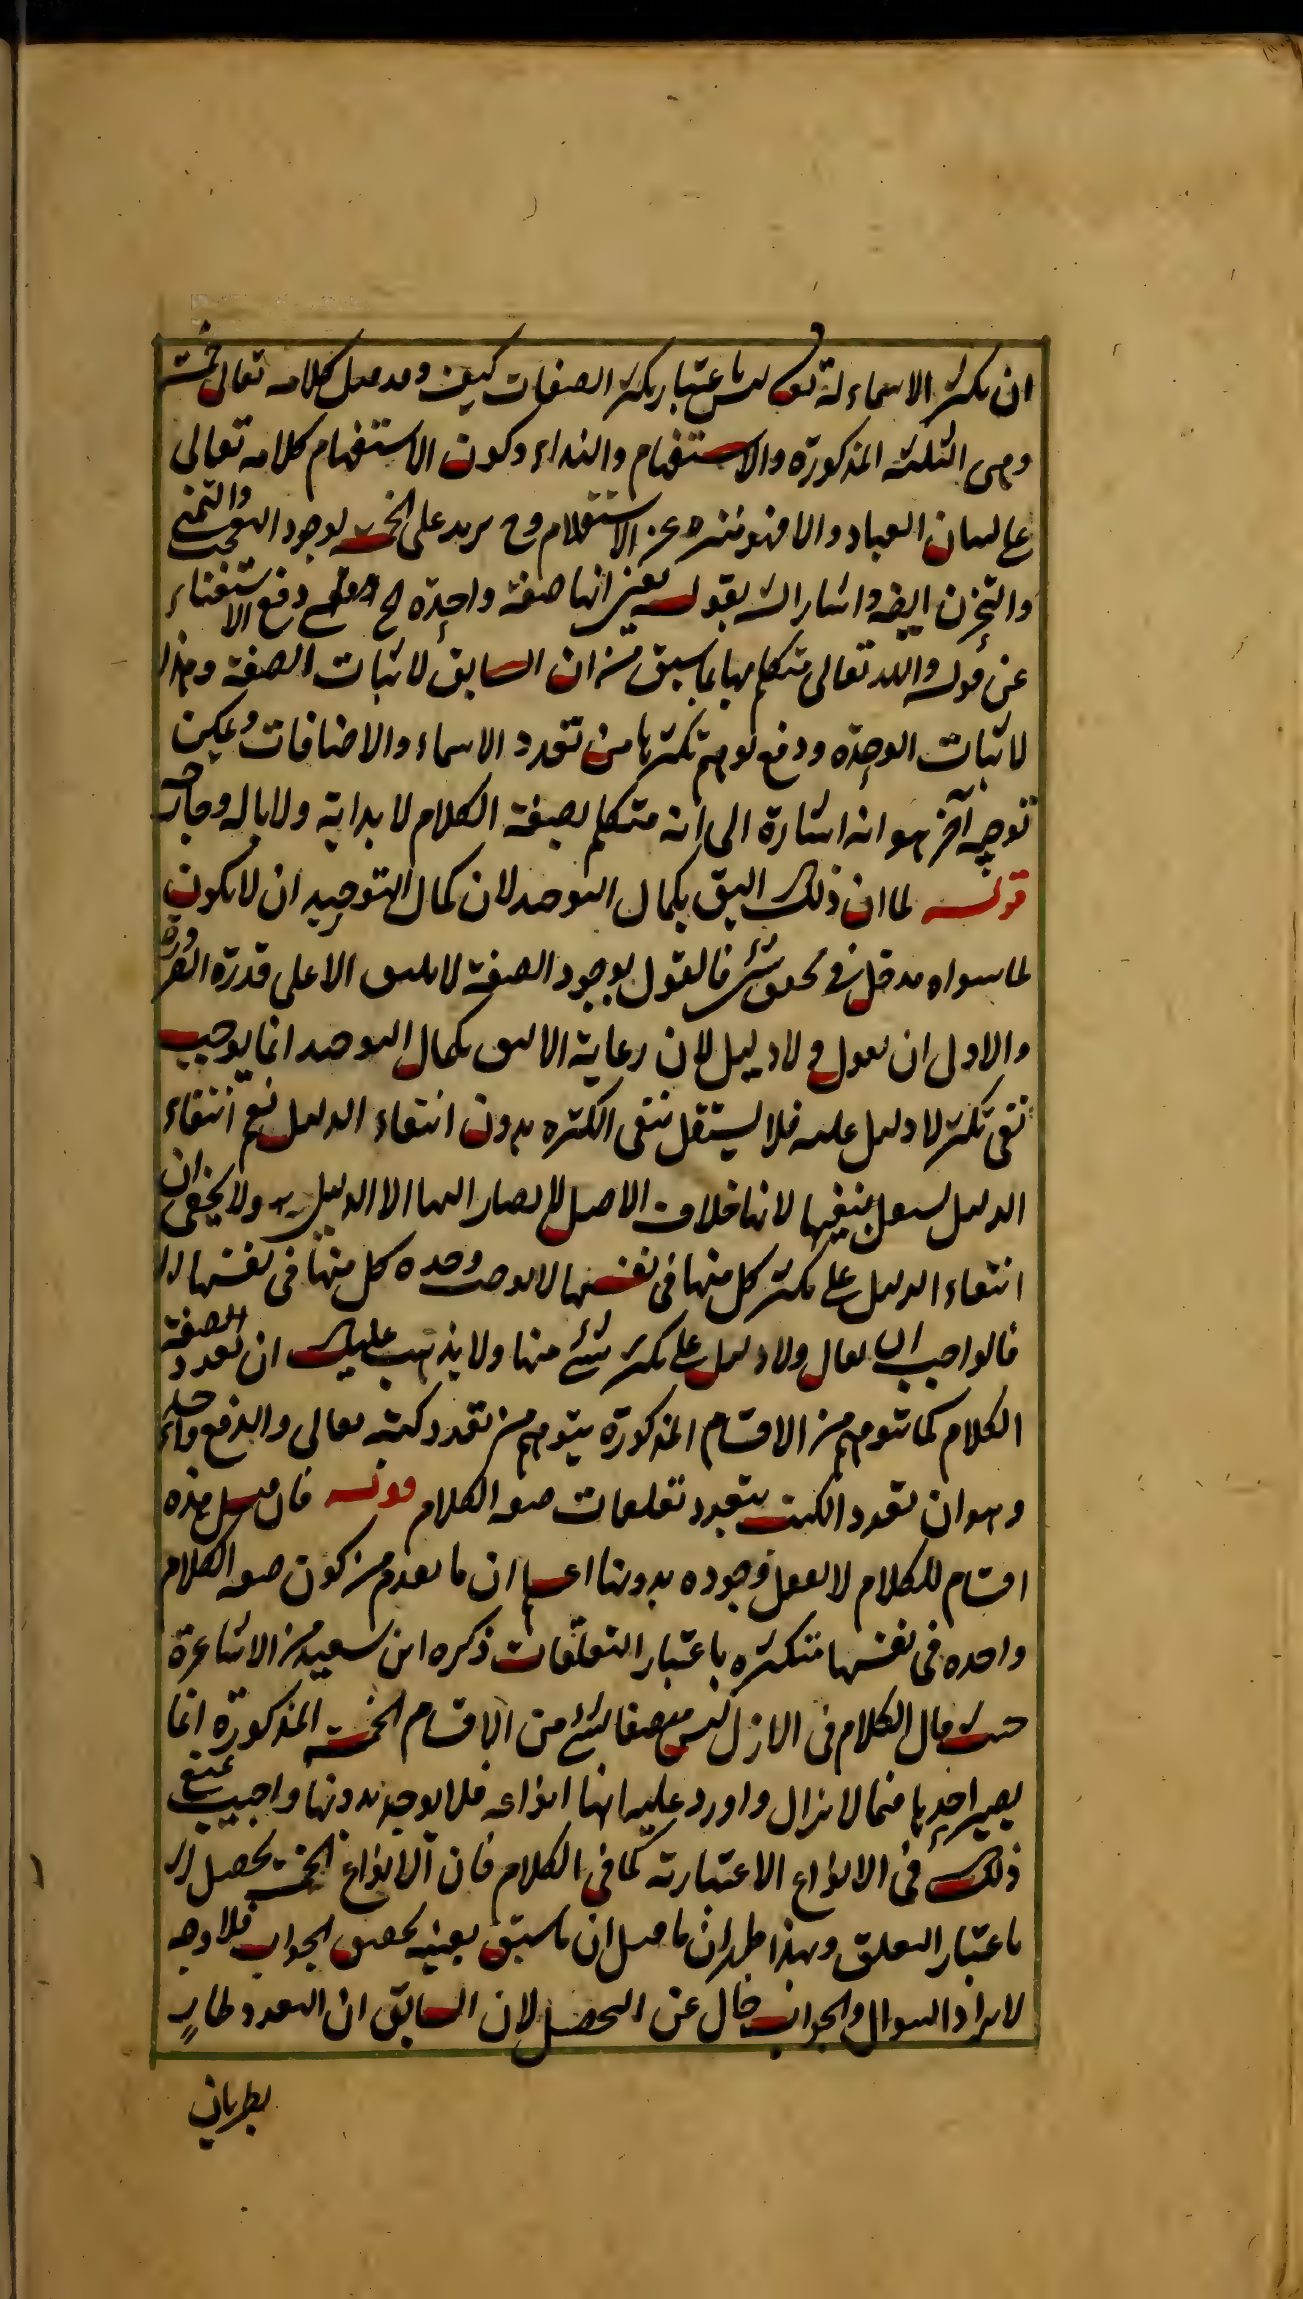 ان تكثر الاسماء له تعالى ليس باعتبار تكثر الصفات كيف وقد قيل كلامه تعالى خمسة
وهي الثلثة المذكورة والاستفهام والنداء وكون الاستفهام كلامه تعالى
على لسان العباد والا فهو منزه عن الاستفهام وح يريد على الخمسة لوجود التعجب والتمني
والتحزن ايضا واشار اليه بقوله يعني انها صفة واحدة الخ دفع الاستغناء
عن قوله والله تعالى متكلم بها بما سبق من ان السابق لاثبات الصفة وهذا
لاثبات الوحدة ودفع توهم تكثرها من تعدد الاسماء والاضافات ويمكن
توجيه آخر هو انه اشارة الى انه متكلم بصفة الكلام لا بداية ولا باله وجارحة
قوله لما ان ذلك اليق بكمال التوحيد لان كمال التوحيد ان لا يكون
لما سواه مدخل في تحقق شئ فالقول بوجود الصفة لا يليق الا على قدرة الضرورة
والاولى ان يقول ولا دليل لان رعاية الاليق بكمال التوحيد انما يوجب
نفي تكثر لا دليل عليه فلا يستقل بنفي الكثرة بدون انتفاء الدليل نعم انتفاء
الدليل يستقل بنفيها لانها خلاف الاصل لا يصار اليها الا الدليل ولا يخفى ان
انتفاء الدليل على تكثر كل منها في نفسها لا يوجب وحدة كل منها في نفسها
فالواجب ان يقال ولا دليل على تكثر شئ منها ولا يذهب عليك ان تعدد الصفة
الكلام كما يتوهم من الاقسام المذكورة يتوهم من تعدد كتبه تعالى والدفع واحد
وهو ان تعدد الكتب بتعدد تعلقات صفة الكلام قوله فان قيل هذه
اقسام للكلام لا يعقل وجوده بدونها اعلم ان ما تقدم من كون صفة الكلام
واحدة في نفسها متكثرة باعتبار التعلقات ذكره ابن سعيد من الاشاعرة
حيث قال الكلام في الازل ليس متصفا بشئ من الاقسام الخمسة المذكورة انما
يصير احدها فيما لا يزال واورد عليه انها انواعه فلا يوجد بدونها واجيب بمنع
ذلك في الانواع الاعتبارية كما في الكلام فان الانواع الخمسة يحصل له
باعتبار التعلق وبهذا ظهر ان ما قيل ان ما سبق بعينه تحقيق الجواب فلا وجه
لايراد السوال والجواب خال عن التحصيل لان السابق ان التعدد طارٍ
بطريان